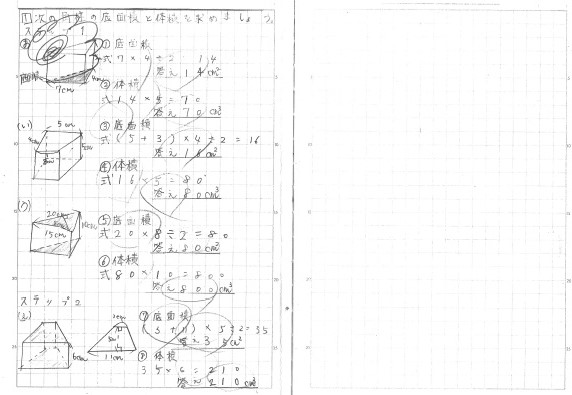 1 次の角柱の底面積と体積を求めましょう。
ステップ1
① 底面積
式 7 × 4 ÷ 2 14
答え 14cm²
7cm
② 体積
式 14 × 5 = 70
答え 70cm³
(い) 5cm
③ 底面積
式 (5 + 3) × 4 ÷ 2 = 16
答え 16cm²
④ 体積
式 16 × 5 = 80
答え 80cm³
(う)
20cm
15cm
⑤ 底面積
式 20 × 8 ÷ 2 = 80
答え 80cm²
⑥ 体積
式 80 × 10 = 800
答え 800cm³
ステップ2
6cm
11cm
⑦ 底面積
(3 + 11) × 5 ÷ 2 = 35
答え 35cm²
⑧ 体積
35 × 6 = 210
答え 210cm³